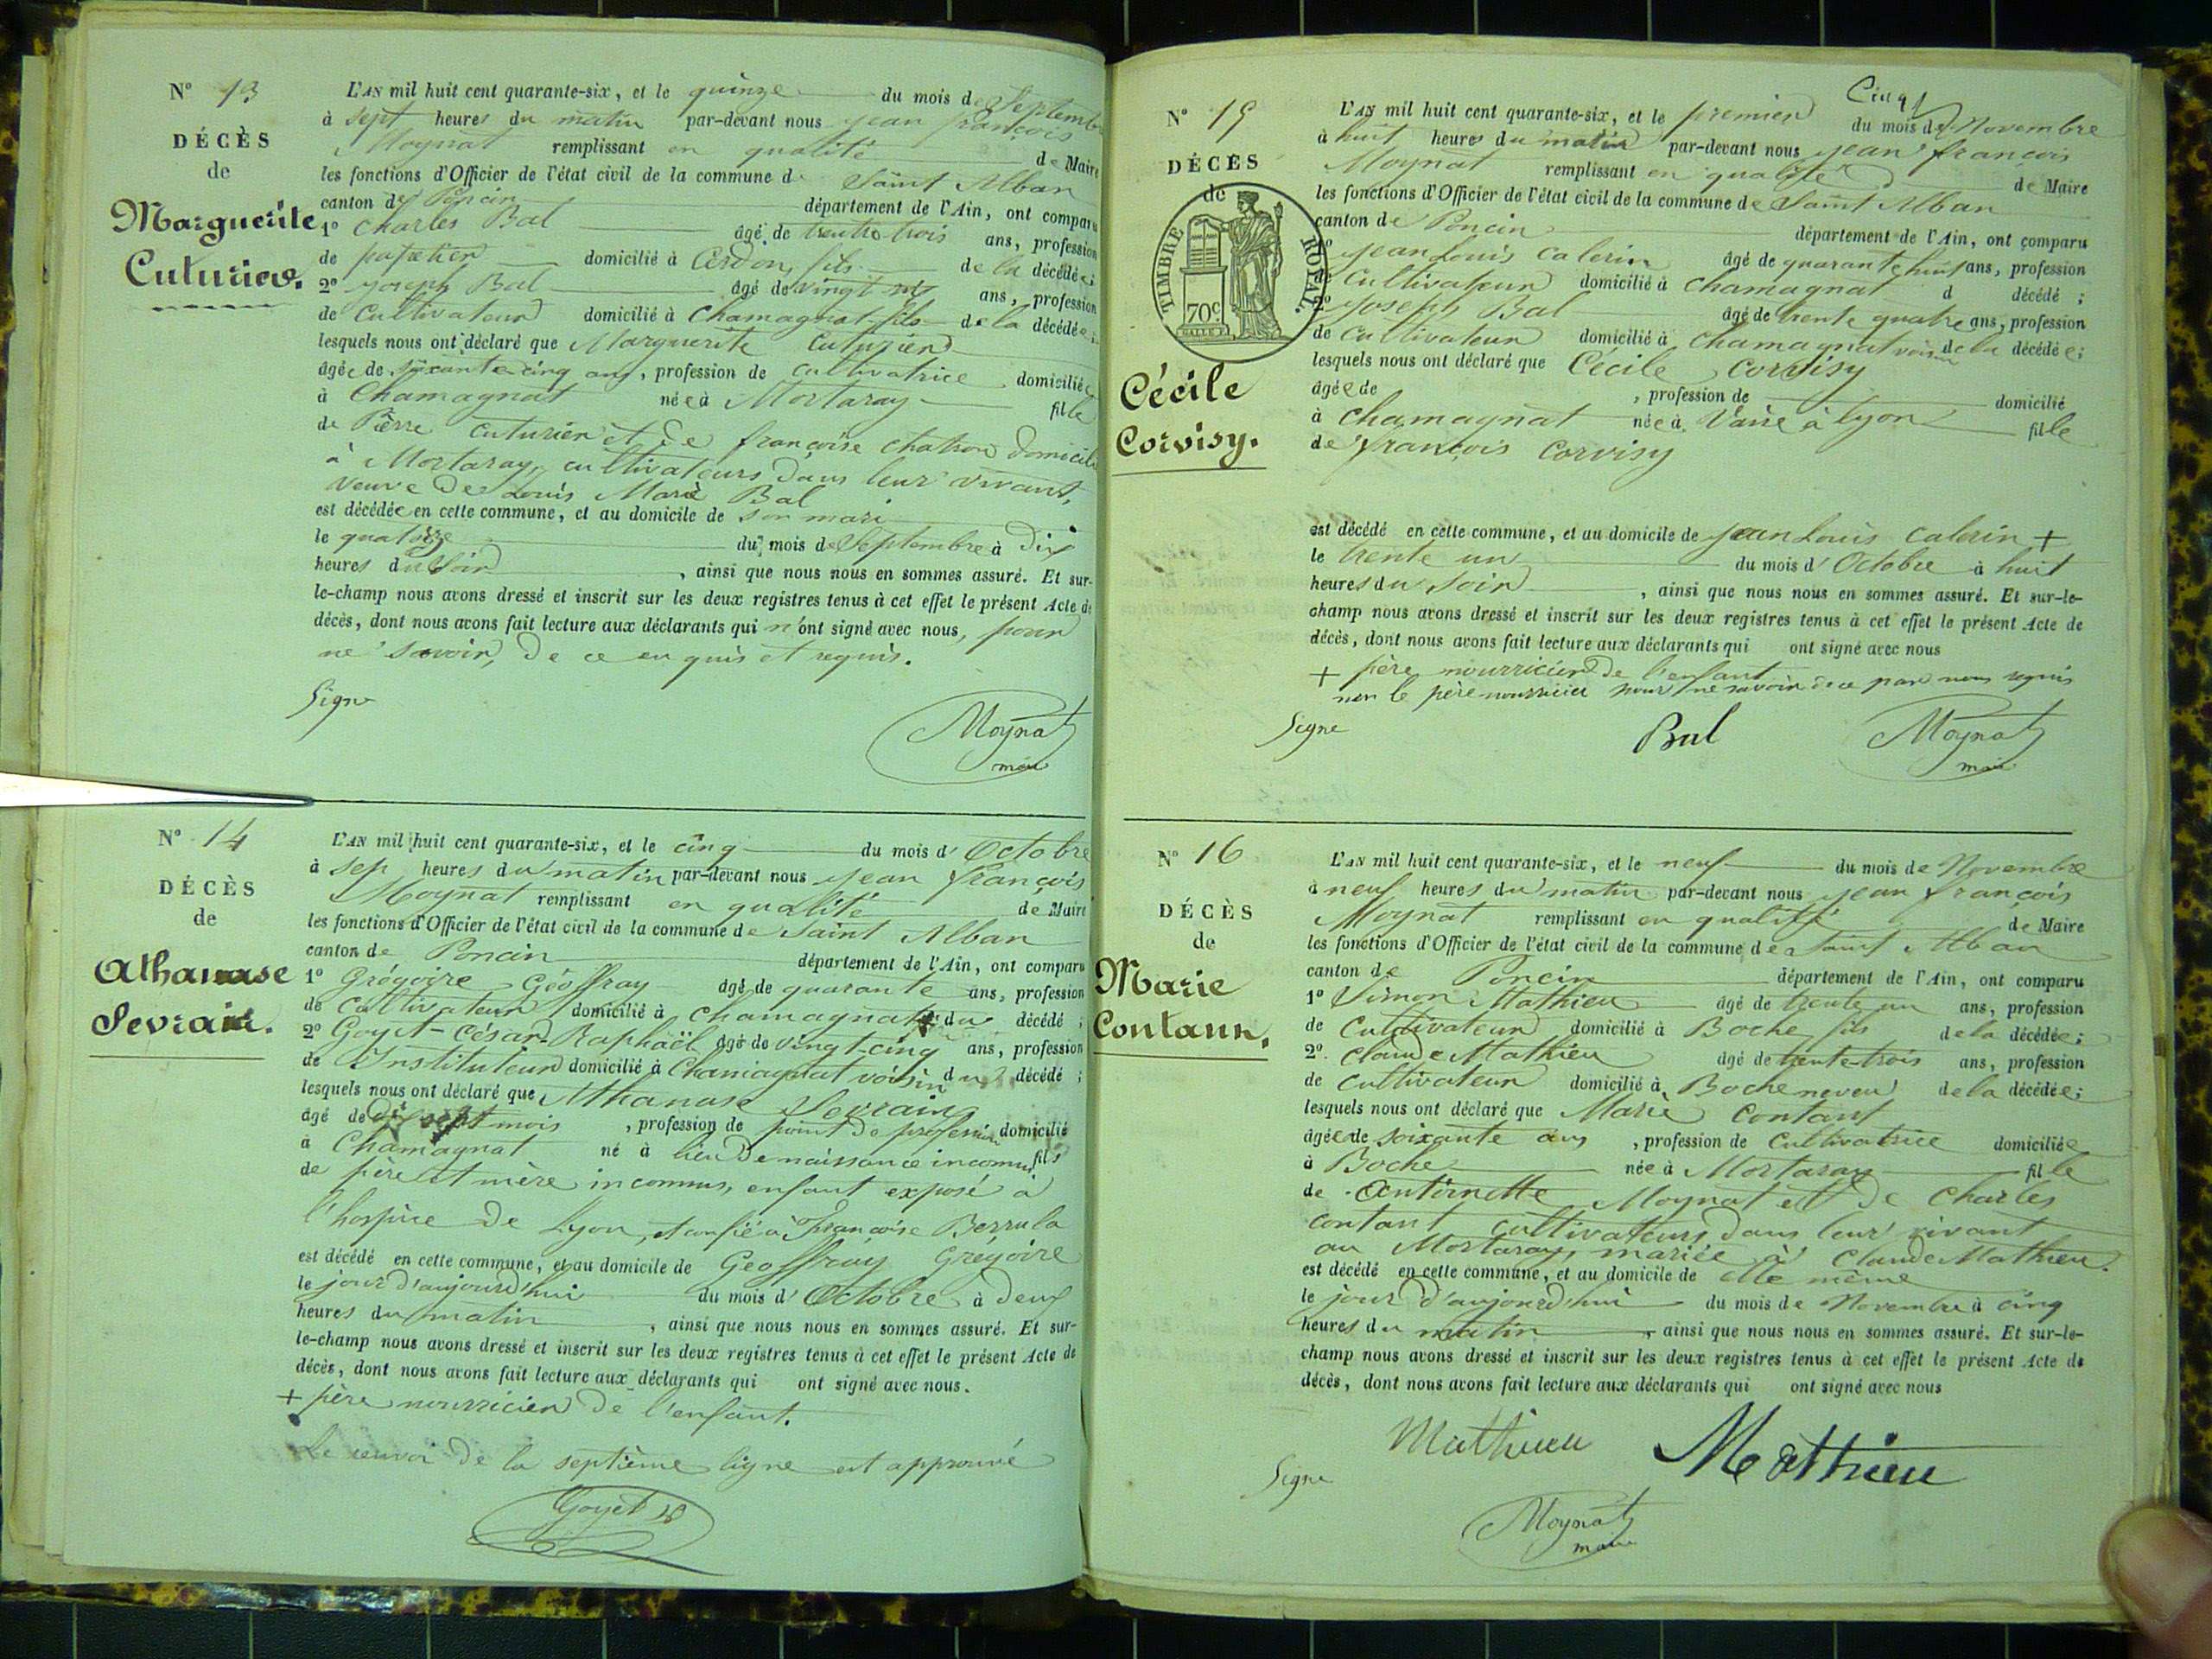 N° 13
DÉCÈS
de
Marguerite
Cuturier.
L'AN mil huit cent quarante-six, et le quinze du mois de Septembre
à sept heures du matin par-devant nous jean françois
Moynat remplissant en qualité de Maire
les fonctions d'Officier de l'état civil de la commune de Saint Alban
canton de Poncin département de l'Ain, ont comparu
1° Charles Bal âgé de trente-trois ans, profession
de papetier domicilié à Cerdon, fils de la décédée;
2° joseph Bal âgé de vingt ans, profession
de Cultivateur domicilié à Chamagnat fils de la décédée;
lesquels nous ont déclaré que Marguerite Cuturier
âgée de soixante cinq ans, profession de cultivatrice domiciliée
à Chamagnat née à Mortaray fille
de Pierre Cuturier et de françoise chatron domicilié
à Mortaray, cultivateurs dans leur vivant,
veuve de Louis Marie Bal
est décédée en cette commune, et au domicile de son mari
le quatorze du mois de Septembre à dix
heures du Soir, ainsi que nous nous en sommes assuré. Et sur-
le-champ nous avons dressé et inscrit sur les deux registres tenus à cet effet le présent Acte de
décès, dont nous avons fait lecture aux déclarants qui n'ont signé avec nous, pour
ne savoir, de ce enquis et requis.
Signé
Moynat
maire
N° 14
DÉCÈS
de
Athanase
Sevrain.
L'AN mil huit cent quarante-six, et le cinq du mois d'Octobre
à sep heures du matin par-devant nous jean françois
Moynat remplissant en qualité de Maire
les fonctions d'Officier de l'état civil de la commune de Saint Alban
canton de Poncin département de l'Ain, ont comparu
1° Grégoire Géoffray âgé de quarante ans, profession
de cultivateur domicilié à Chamagnat + du décédé;
2° Goyet César-Raphaël âgé de vingt-cinq ans, profession
de Instituteur domicilié à Chamagnat voisin du décédé;
lesquels nous ont déclaré que Athanase Sevrain
âgé de dix sept mois, profession de point de profession domicilié
à Chamagnat né à lieu de naissance inconnu fils
de père et mère inconnus, enfant exposé à
l'hospice de Lyon, et confié à Françoise Berrula
est décédé en cette commune, et au domicile de Geoffray Grégoire
le jour d'aujourd'hui du mois d'Octobre à deux
heures du matin, ainsi que nous nous en sommes assuré. Et sur-
le-champ nous avons dressé et inscrit sur les deux registres tenus à cet effet le présent Acte de
décès, dont nous avons fait lecture aux déclarants qui ont signé avec nous.
+ père nourricier de l'enfant.
Le renvoi de la septième ligne est approuvé
Goyet
Cinq
N° 15
DÉCÈS
de
TIMBRE ROYAL.
70c
Cécile
Corvisy.
L'AN mil huit cent quarante-six, et le premier du mois de Novembre
à huit heures du matin par-devant nous jean françois
Moynat remplissant en qualité de Maire
les fonctions d'Officier de l'état civil de la commune de Saint Alban
canton de Poncin département de l'Ain, ont comparu
1° jean Louis Calerin âgé de quarante huit ans, profession
de Cultivateur domicilié à Chamagnat d décédé;
2° Joseph Bal âgé de trente quatre ans, profession
de cultivateur domicilié à Chamagnat voisin de la décédée;
lesquels nous ont déclaré que Cécile Corvisy
âgée de , profession de domicilié
à Chamagnat née à Vaise à Lyon fille
de françois Corvisy
est décédé en cette commune, et au domicile de jean Louis Calerin +
le trente un du mois d'Octobre à huit
heures du Soir, ainsi que nous nous en sommes assuré. Et sur-le-
champ nous avons dressé et inscrit sur les deux registres tenus à cet effet le présent Acte de
décès, dont nous avons fait lecture aux déclarants qui ont signé avec nous
+ père nourricier de l'enfant
non le père nourricier pour ne savoir de ce par nous requis
Signé
Bal
Moynat
maire
N° 16
DÉCÈS
de
Marie
Contann.
L'AN mil huit cent quarante-six, et le neuf du mois de Novembre
à neuf heures du matin par-devant nous jean françois
Moynat remplissant en qualité de Maire
les fonctions d'Officier de l'état civil de la commune de Saint Alban
canton de Poncin département de l'Ain, ont comparu
1° Simon Mathieu âgé de trente un ans, profession
de Cultivateur domicilié à Boche fils de la décédée;
2° Claude Mathieu âgé de trente-trois ans, profession
de cultivateur domicilié à Boche neveu de la décédée;
lesquels nous ont déclaré que Marie Contant
âgée de soixante ans, profession de Cultivatrice domiciliée
à Boche née à Mortaray fille
de Antoinette Moynat et de Charles
contant cultivateurs dans leur vivant
au Mortaray, mariée à Claude Mathieu.
est décédé en cette commune, et au domicile de elle même
le jour d'aujourd'hui du mois de Novembre à cinq
heures du matin, ainsi que nous nous en sommes assuré. Et sur-le-
champ nous avons dressé et inscrit sur les deux registres tenus à cet effet le présent Acte de
décès, dont nous avons fait lecture aux déclarants qui ont signé avec nous
Mathieu Mathieu
Signé
Moynat
maire